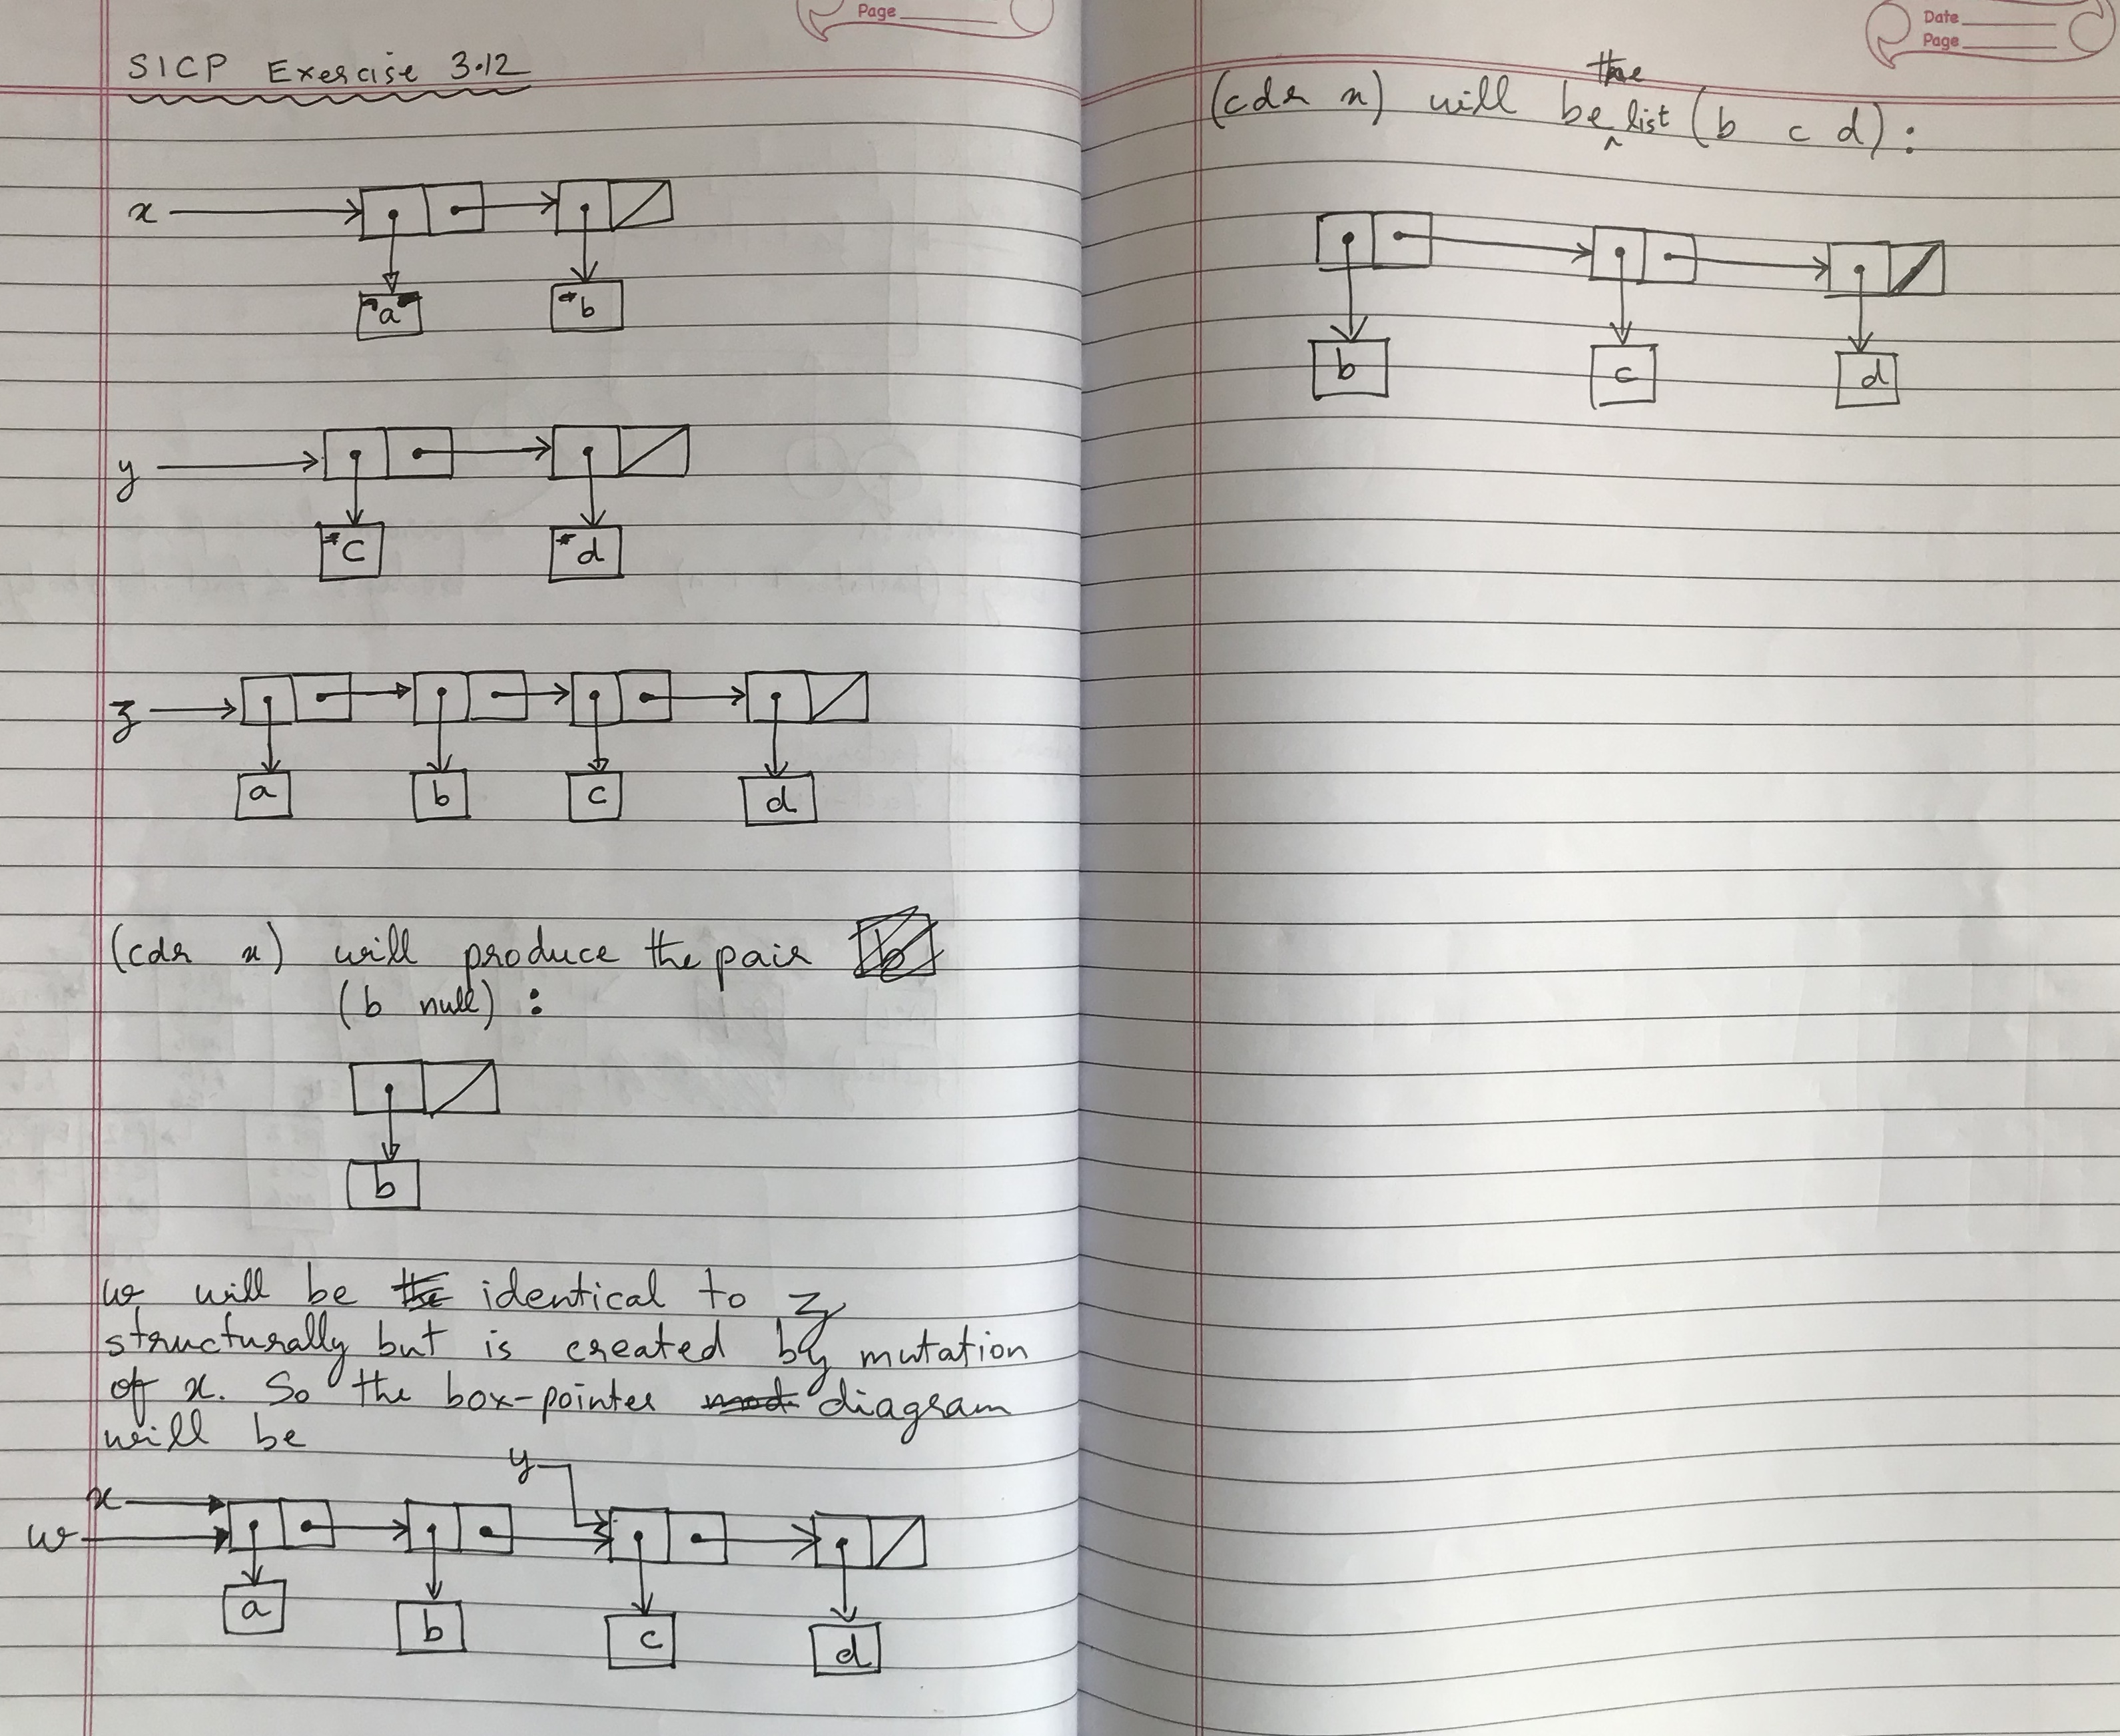 Page
SICP Exercise 3.12
x
a b
y
c d
z
a b c d
(cdr x) will produce the pair
(b null) :
b
w will be identical to z
structurally but is created by mutation
of x. So the box-pointer diagram
will be
y
x
w
a b c d
Date
Page
the
(cdr x) will be list (b c d) :
b c d